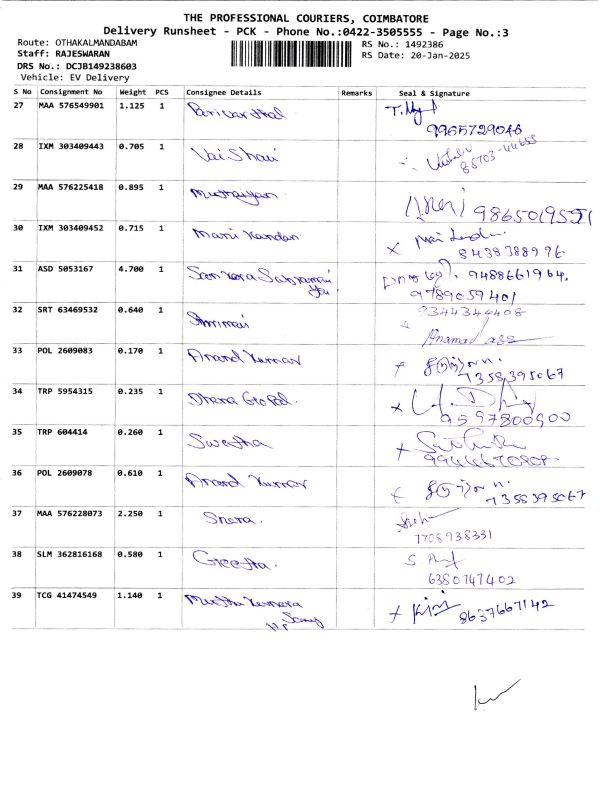 THE PROFESSIONAL COURIERS, COIMBATORE
Delivery Runsheet - PCK - Phone No.:0422-3505555 - Page No.:3
Route: OTHAKALMANDABAM
RS No.: 1492386
Staff: RAJESWARAN
RS Date: 20-Jan-2025
DRS No.: DCJB149238603
Vehicle: EV Delivery
S No Consignment No Weight PCS Consignee Details Remarks Seal & Signature
27 MAA 576549901 1.125 1
9965729046
28 IXM 303409443 0.705 1 Vai Shavi
85703-44655
29 MAA 576225418 0.895 1 Muthaiyan
9865019551
30 IXM 303409452 0.715 1 Mani Kandan
8438388996
31 ASD 5053167 4.700 1
9488661964.
9789059401
32 SRT 63469532 0.640 1
9344344408
33 POL 2609083 0.170 1 Anand Kumar
7358395067
34 TRP 5954315 0.235 1 Dhana Gopal.
9597800900
35 TRP 604414 0.260 1 Swetha
36 POL 2609078 0.610 1 Anand Kumar
7358395067
37 MAA 576228073 2.250 1 Sneha.
7708938331
38 SLM 362816168 0.580 1 Geetha.
6380747402
39 TCG 41474549 1.140 1
8637667142